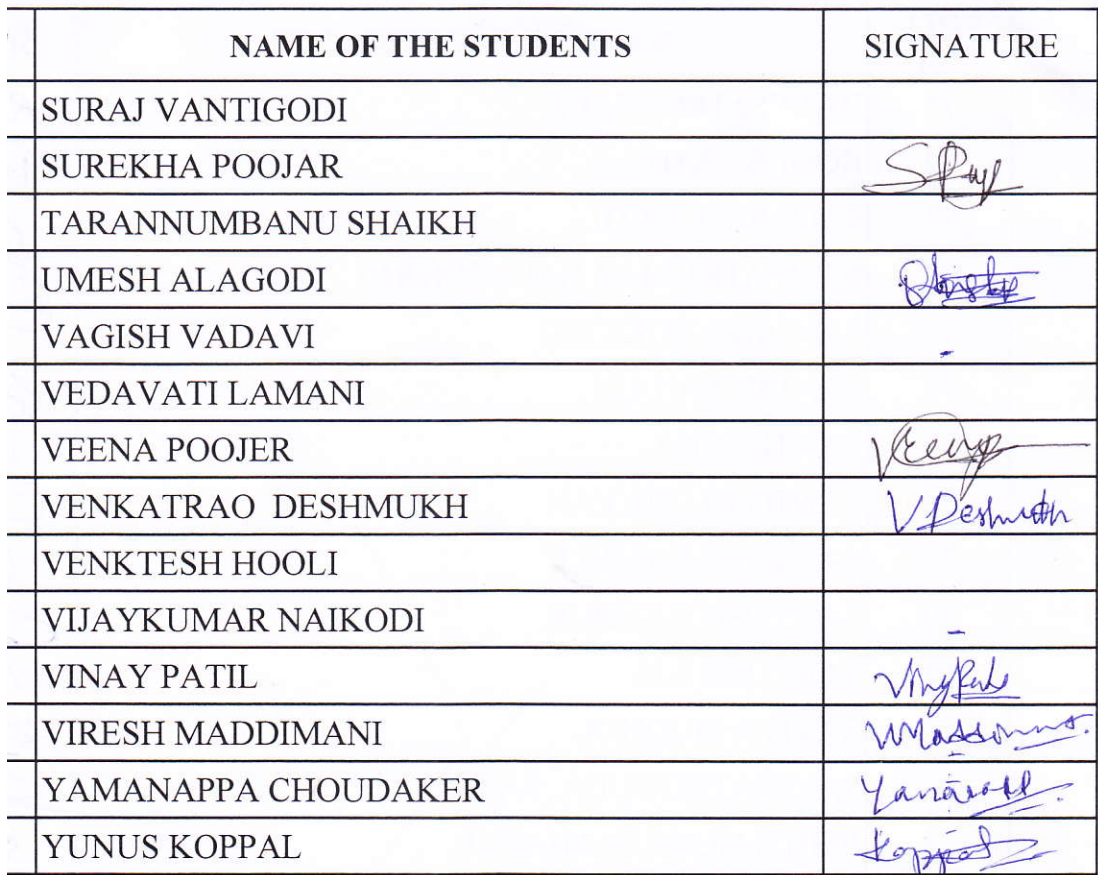 NAME OF THE STUDENTS SIGNATURE
SURAJ VANTIGODI
SUREKHA POOJAR
TARANNUMBANU SHAIKH
UMESH ALAGODI
VAGISH VADAVI -
VEDAVATI LAMANI
VEENA POOJER
VENKATRAO DESHMUKH V Deshmukh
VENKTESH HOOLI
VIJAYKUMAR NAIKODI -
VINAY PATIL
VIRESH MADDIMANI
YAMANAPPA CHOUDAKER
YUNUS KOPPAL Koppal